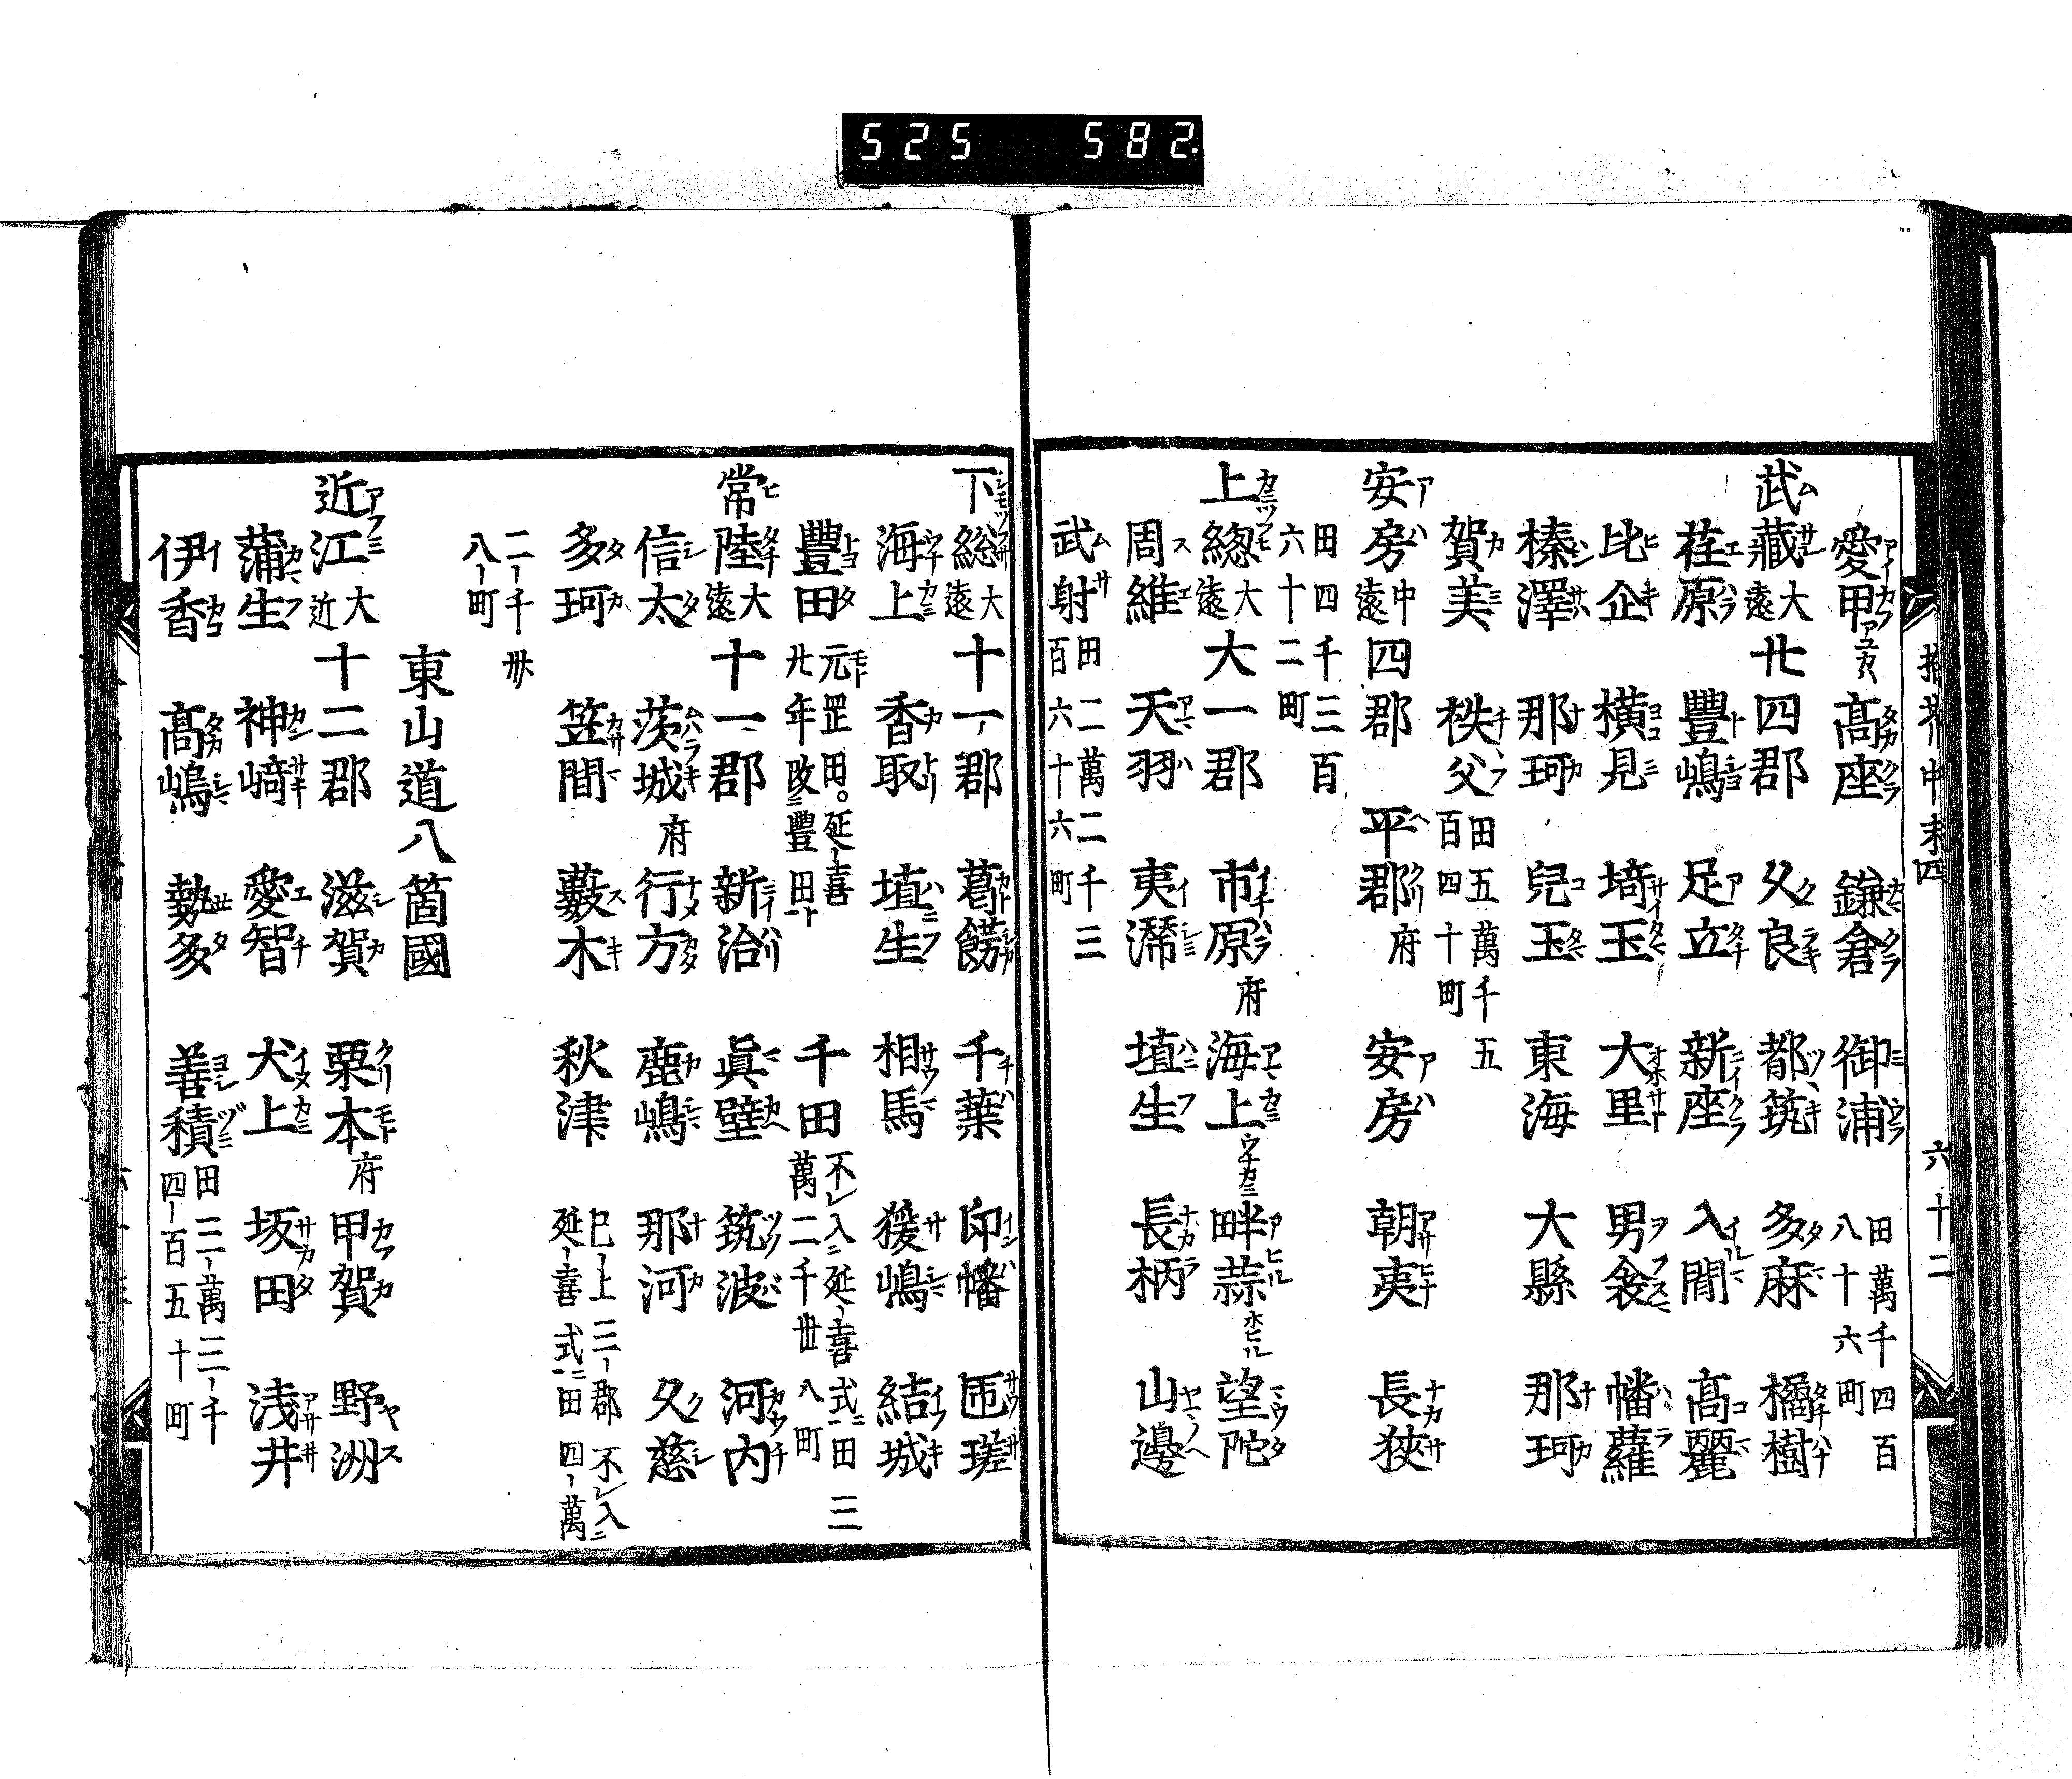 525 582.
拾芥中末四 六十二
愛甲 髙座 鎌倉 御浦 田萬千四百八十六町
武藏 大遠 廿四郡 久良 都筑 多麻 橘樹
荏原 豐嶋 足立 新座 入間 髙麗
比企 横見 埼玉 大里 男衾 幡蘿
榛澤 那珂 兒玉 東海 大縣 那珂
賀美 秩父 田五萬千五百四十町
安房 中遠 四郡 平郡 府 安房 朝夷 長狹
田四千三百六十二町
上總 大遠 大一郡 市原 府 海上 畔蒜 望陀
周維 天羽 夷灊 埴生 長柄 山邊
武射 田二萬二千三百六十六町
下総 大遠 十一郡 葛餝 千葉 印幡 匝瑳
海上 香取 埴生 相馬 猨嶋 結城
豐田 元罡田。延喜廿年改豐田 千田 不入延喜式田三萬二千卅八町
常陸 大遠 十一郡 新治 眞壁 筑波 河内
信太 茨城 府 行方 鹿嶋 那河 久慈
多珂 笠間 藪木 秋津 巳上三郡不入延喜式田四萬
二千卅八町
東山道八箇國
近江 大近 十二郡 滋賀 栗本 府 甲賀 野洲
蒲生 神﨑 愛智 犬上 坂田 浅井
伊香 髙嶋 勢多 善積 田三萬三千四百五十町